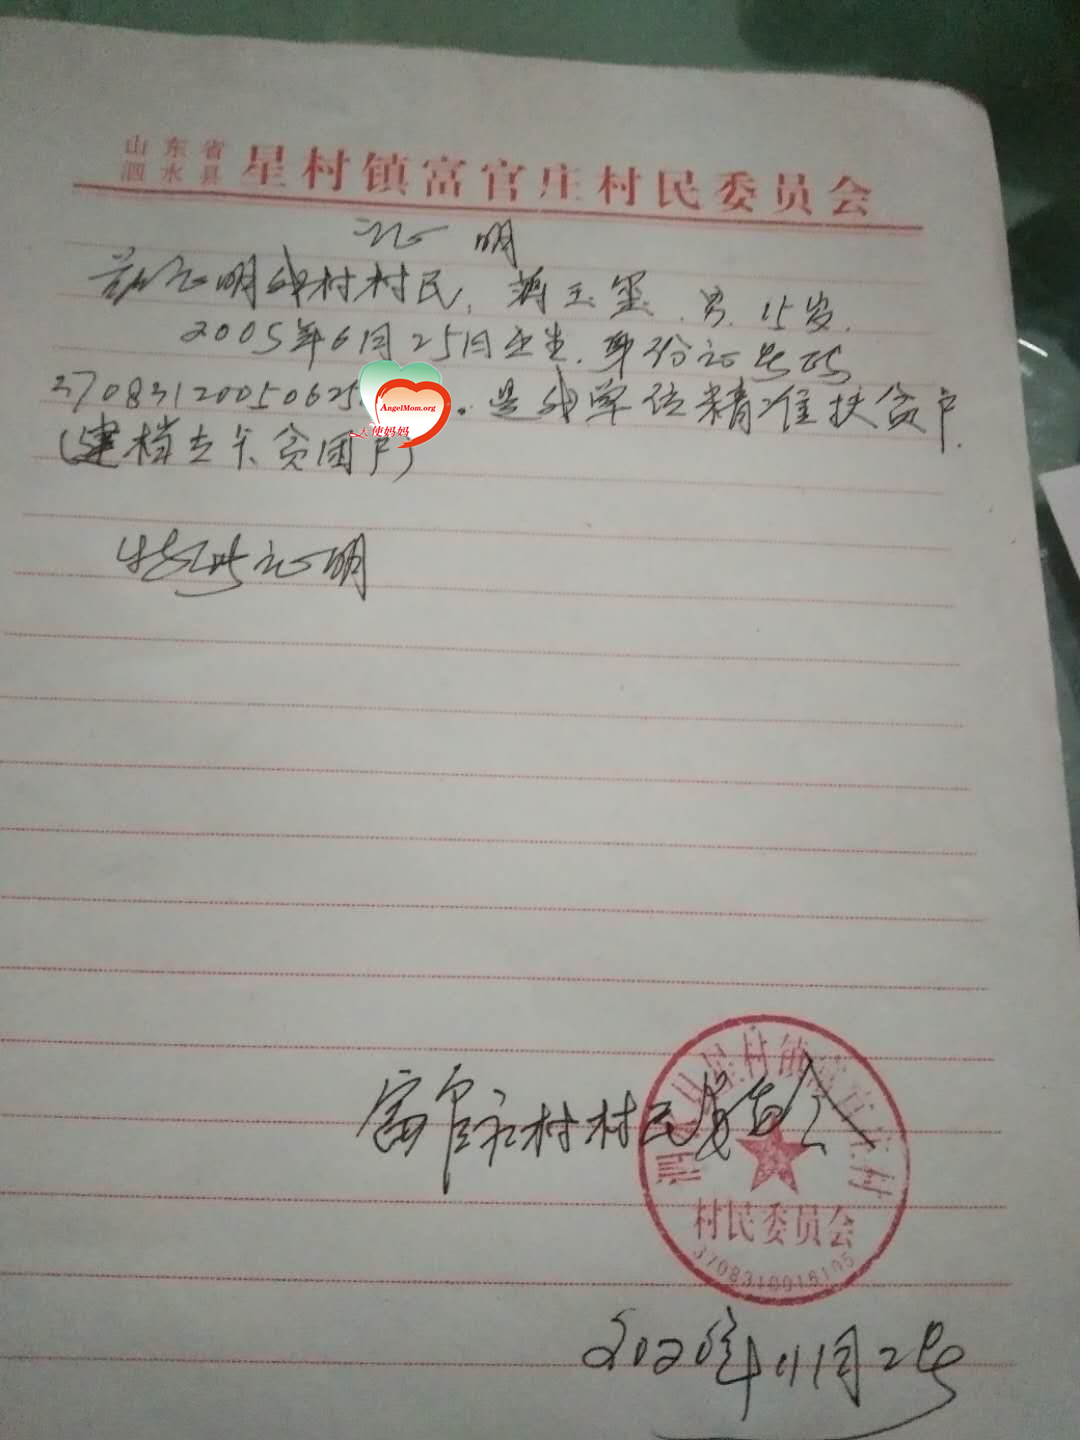 山东省
泗水县 星村镇富官庄村民委员会
证 明
兹证明我村村民, 蒋玉玺, 男, 15岁,
2005年6月25日出生, 身份证号码
37083120050625
AngelMom.org
天使妈妈
是我单位精准扶贫户
(建档立卡贫困户)
特此证明
富官庄村村民委员会
星村镇富官庄村
村民委员会
2020年11月2号